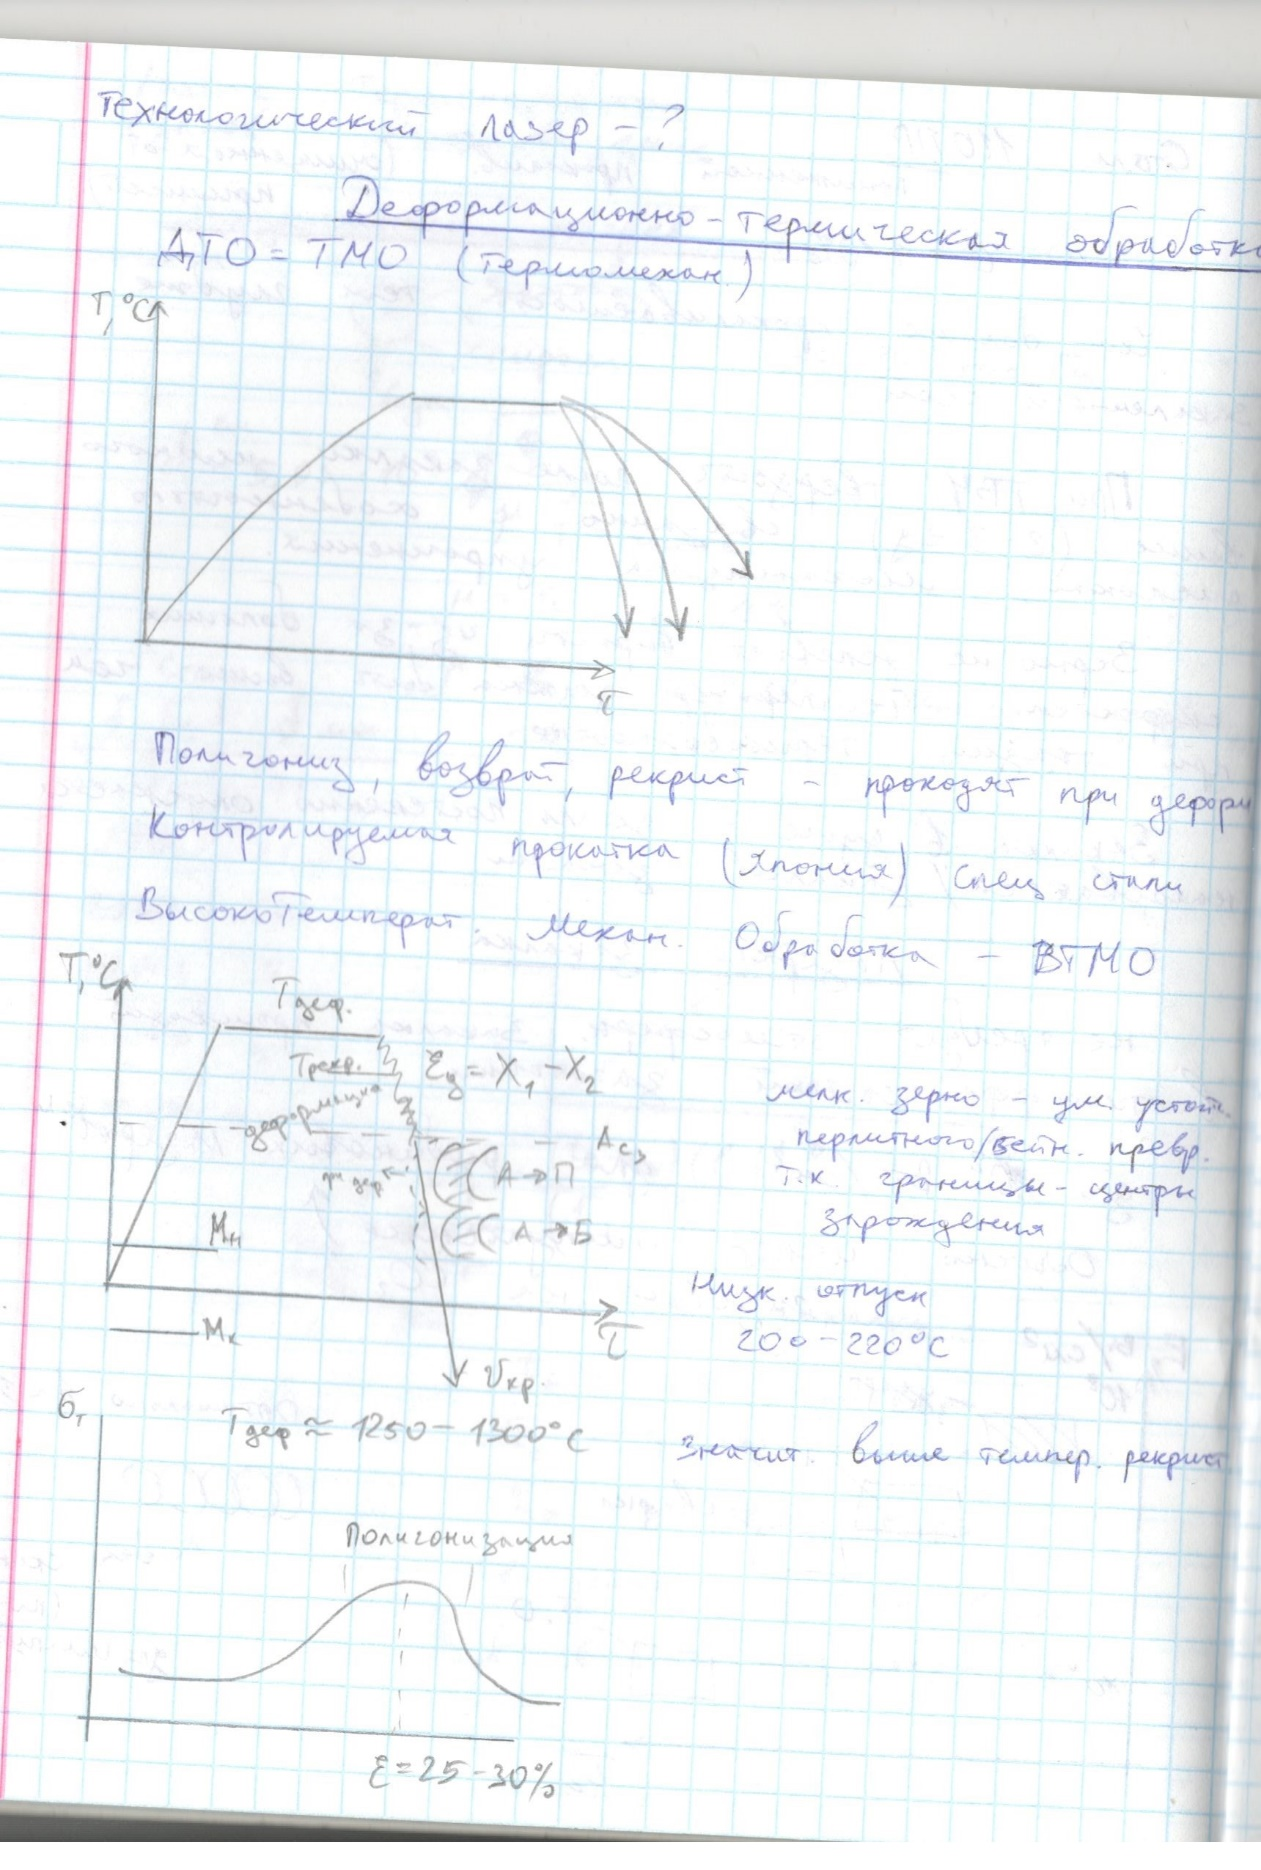 Технологический лазер - ?
Деформационно - термическая обработка
ДТО = ТМО (термомехан.)
T, °C
τ
Полигониз, возврат, рекрист - проходят при деформ
Контролируемая прокатка (Япония) спец стали
ВысокоТемперат. Механ. Обработка - ВТМО
T, °C
Tдеф.
Tрекр.
Ɛд = X₁ - X₂
деформация
Ac₃
A→П
A→Б
Mн
Mк
τ
Vкр.
мелк. зерно - ум. устойч.
перлитного/бейн. превр.
т.к. границы - центры
зарождения
Низк. отпуск
200 - 220°C
бт
Tдеф ≈ 1250 - 1300°C
Значит. выше темпер. рекрист
Полигонизация
Ɛ = 25 - 30%